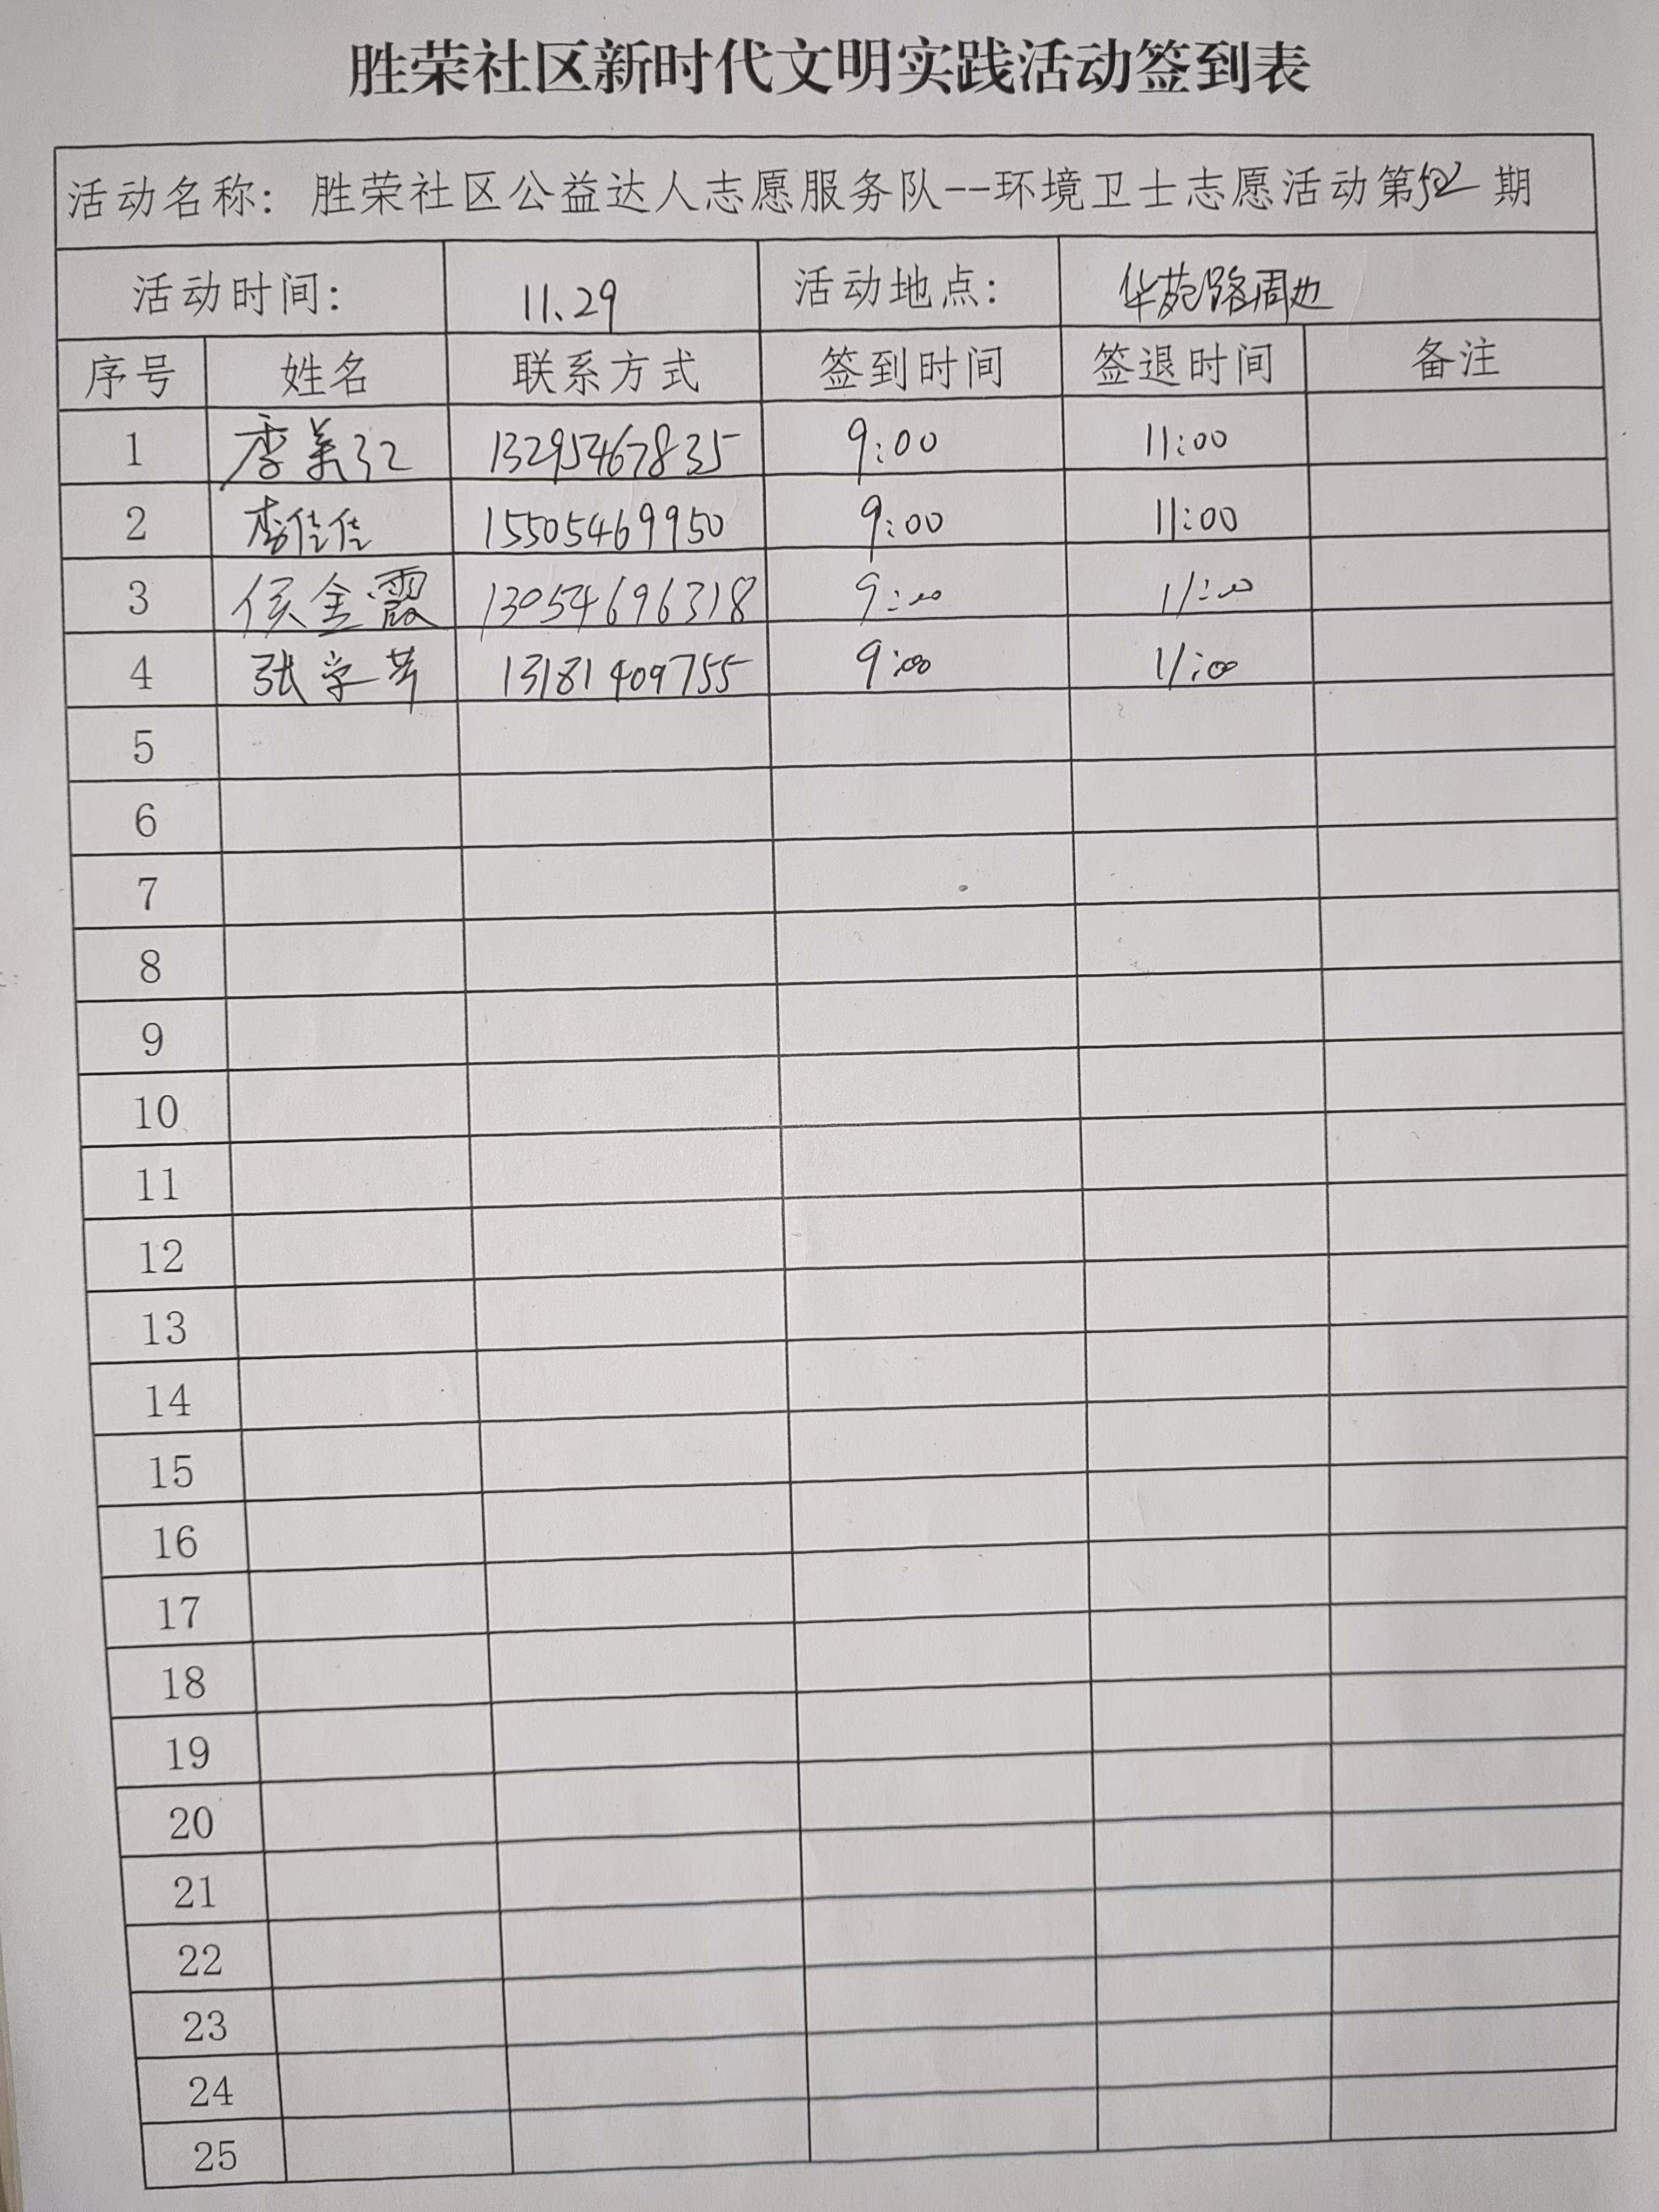 胜荣社区新时代文明实践活动签到表
活动名称：胜荣社区公益达人志愿服务队--环境卫士志愿活动第 期
活动时间： 11.29 活动地点： 华苑路周边
序号 姓名 联系方式 签到时间 签退时间 备注
1 李美江 13295467835 9:00 11:00
2 李佳佳 15505469950 9:00 11:00
3 侯金霞 13054696318 9:00 11:00
4 张学芹 13181409755 9:00 11:00
5
6
7
8
9
10
11
12
13
14
15
16
17
18
19
20
21
22
23
24
25